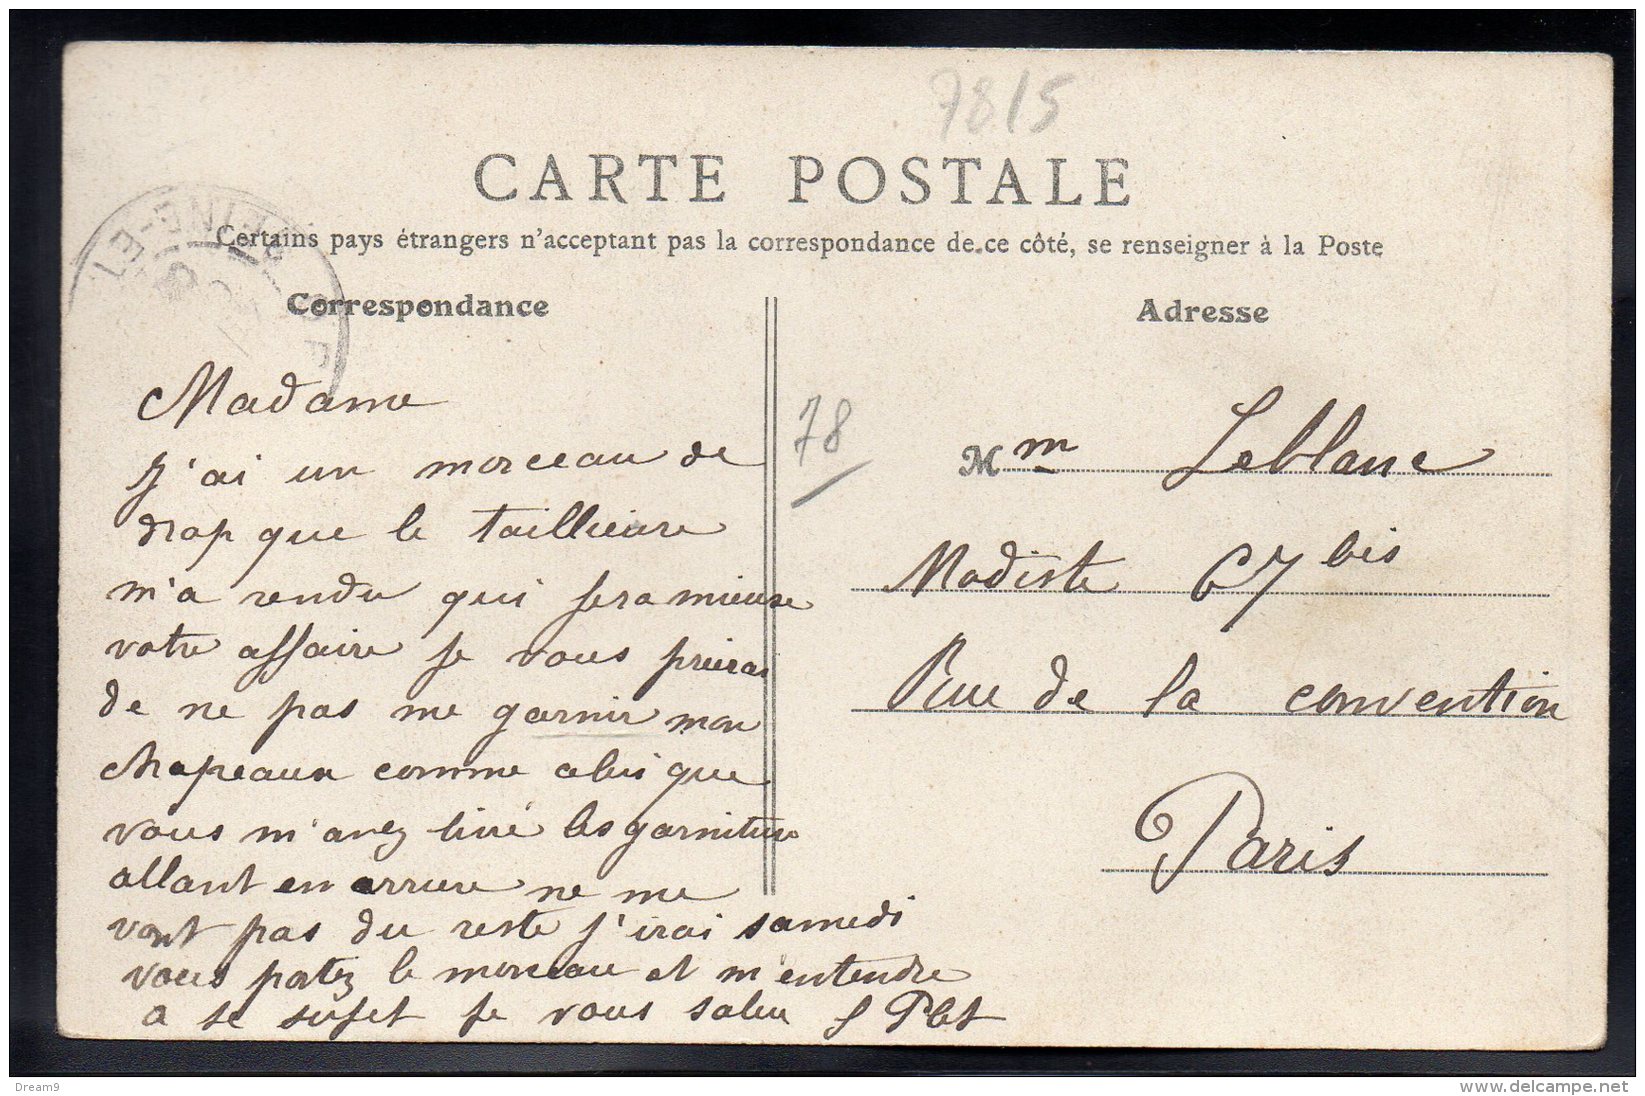 7815
CARTE POSTALE
Certains pays étrangers n'acceptent pas la correspondance de ce côté, se renseigner à la Poste
SEINE-ET-
Correspondance
Adresse
Madame
J'ai un morceau de
drap que le taillieure
m'a rendu qui fera mieuse
votre affaire je vous prierai
de ne pas me garnir mon
chapeaux comme celui que
vous m'avez livré les garniture
allant en arriere ne me
vont pas du reste j'irai samedi
vous portez le morceau et m'entendre
a se sujet je vous salue
78
Mm Leblanc
Modiste 67 bis
Rue de la convention
Paris
Dream9
www.delcampe.net